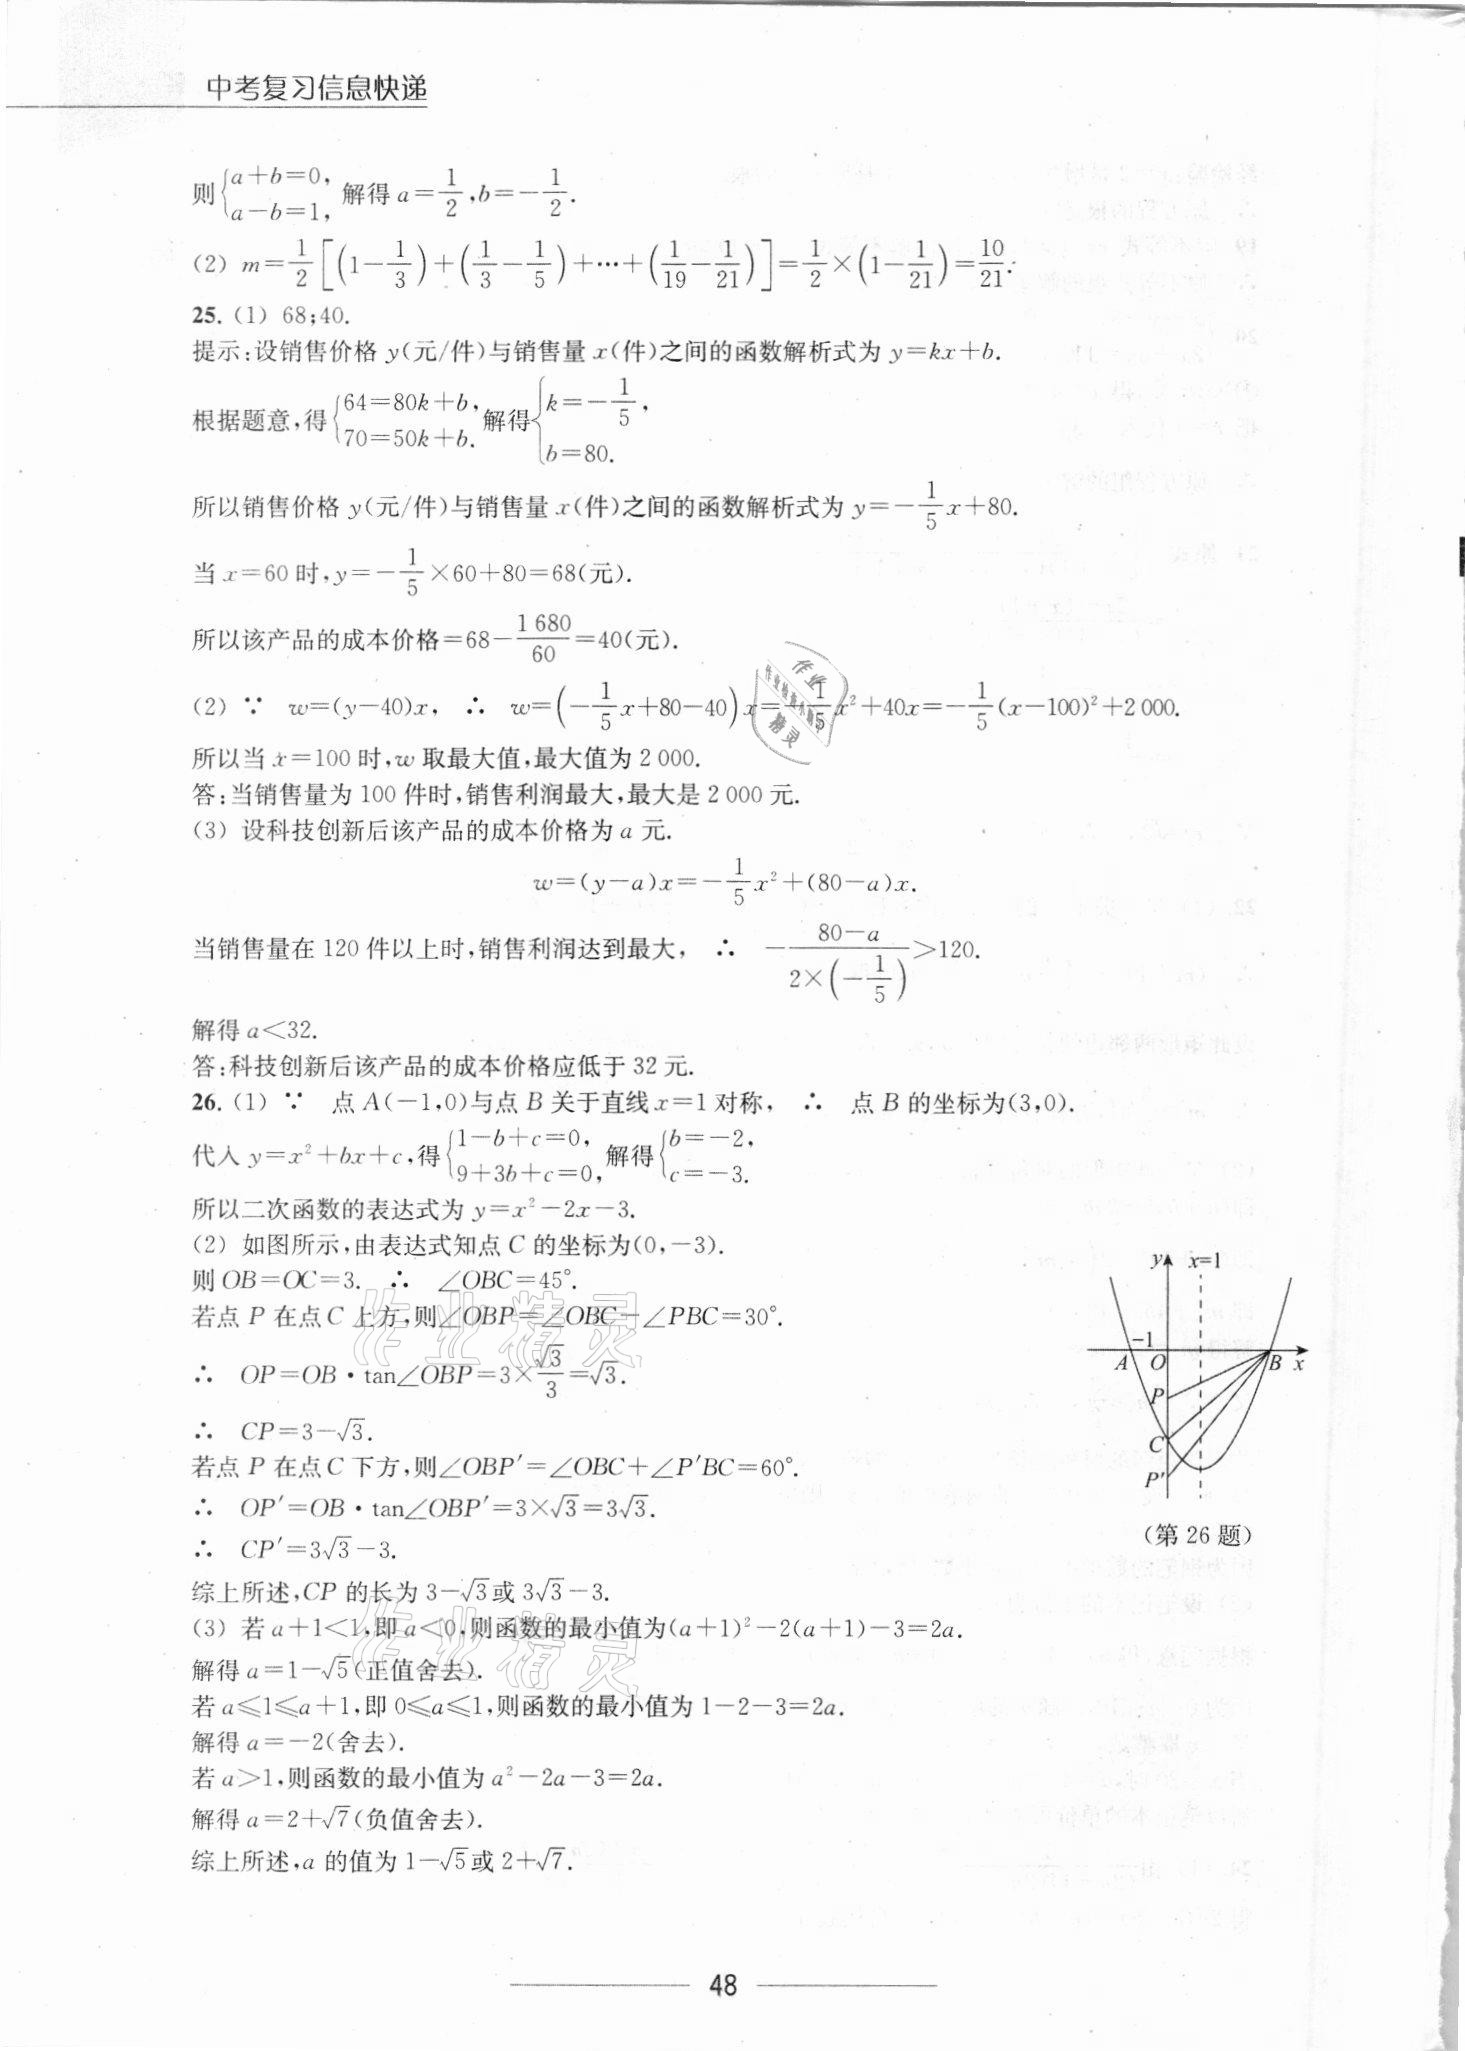 中考复习信息快递
则{a+b=0, a-b=1, 解得 a=1/2, b=-1/2.
(2) m=1/2[(1-1/3)+(1/3-1/5)+⋯+(1/19-1/21)]=1/2×(1-1/21)=10/21.
25. (1) 68;40.
提示:设销售价格 y(元/件)与销售量 x(件)之间的函数解析式为 y=kx+b.
根据题意,得{64=80k+b, 70=50k+b. 解得{k=-1/5, b=80.
所以销售价格 y(元/件)与销售量 x(件)之间的函数解析式为 y=-1/5x+80.
当 x=60 时,y=-1/5×60+80=68(元).
所以该产品的成本价格=68-1 680/60=40(元).
(2) ∵ w=(y-40)x, ∴ w=(-1/5x+80-40)x=-1/5x²+40x=-1/5(x-100)²+2 000.
所以当 x=100 时,w 取最大值,最大值为 2 000.
答:当销售量为 100 件时,销售利润最大,最大是 2 000 元.
(3) 设科技创新后该产品的成本价格为 a 元.
w=(y-a)x=-1/5x²+(80-a)x.
当销售量在 120 件以上时,销售利润达到最大, ∴ -(80-a)/(2×(-1/5))>120.
解得 a<32.
答:科技创新后该产品的成本价格应低于 32 元.
26. (1) ∵ 点 A(-1,0)与点 B 关于直线 x=1 对称, ∴ 点 B 的坐标为(3,0).
代入 y=x²+bx+c,得{1-b+c=0, 9+3b+c=0, 解得{b=-2, c=-3.
所以二次函数的表达式为 y=x²-2x-3.
(2) 如图所示,由表达式知点 C 的坐标为(0,-3).
则 OB=OC=3. ∴ ∠OBC=45°.
若点 P 在点 C 上方,则∠OBP=∠OBC-∠PBC=30°.
∴ OP=OB·tan∠OBP=3×√3/3=√3.
∴ CP=3-√3.
若点 P 在点 C 下方,则∠OBP′=∠OBC+∠P′BC=60°.
∴ OP′=OB·tan∠OBP′=3×√3=3√3.
∴ CP′=3√3-3.
综上所述,CP 的长为 3-√3或 3√3-3.
(3) 若 a+1<1,即 a<0,则函数的最小值为(a+1)²-2(a+1)-3=2a.
解得 a=1-√5(正值舍去).
若 a≤1≤a+1,即 0≤a≤1,则函数的最小值为 1-2-3=2a.
解得 a=-2(舍去).
若 a>1,则函数的最小值为 a²-2a-3=2a.
解得 a=2+√7(负值舍去).
综上所述,a 的值为 1-√5或 2+√7.
y x=1
-1
A O B x
P
C
P′
(第 26 题)
作业精灵
作业精灵
作业
精灵
48